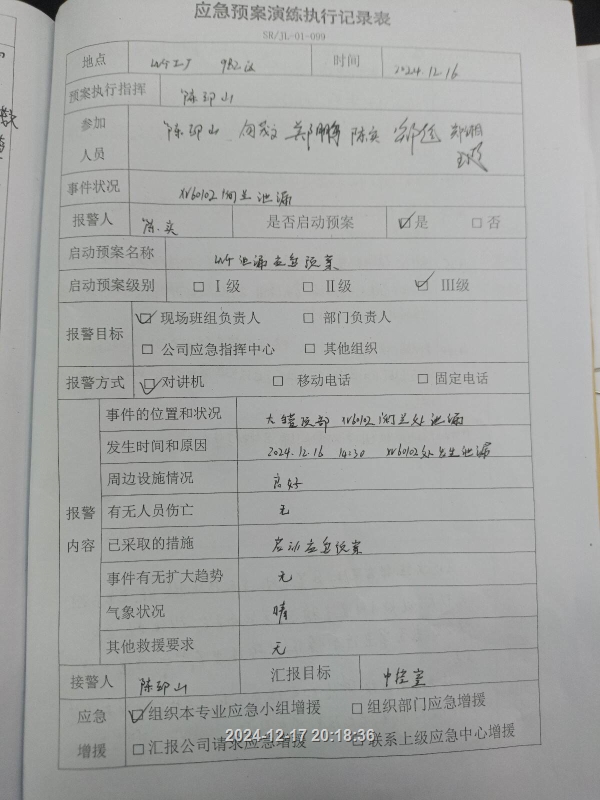 应急预案演练执行记录表
SR/JL-01-099
地点 LNG工厂 982区 时间 2024.12.16
预案执行指挥 陈邵山
参加 陈邵山 郑鹏 陈实
人员
事件状况 XV60102阀兰泄漏
报警人 陈实 是否启动预案 ☑是 □否
启动预案名称 LNG泄漏应急预案
启动预案级别 □Ⅰ级 □Ⅱ级 ☑Ⅲ级
报警目标 ☑现场班组负责人 □部门负责人
□公司应急指挥中心 □其他组织
报警方式 ☑对讲机 □移动电话 □固定电话
事件的位置和状况 大罐顶部 XV60102阀兰处泄漏
发生时间和原因 2024.12.16 14:30 XV60102处发生泄漏
周边设施情况 良好
报警 有无人员伤亡 无
内容 已采取的措施 启动应急预案
事件有无扩大趋势 无
气象状况 晴
其他救援要求 无
接警人 陈邵山 汇报目标 中控室
应急 ☑组织本专业应急小组增援 □组织部门应急增援
增援 □汇报公司请求应急增援 □联系上级应急中心增援
2024-12-17 20:18:36